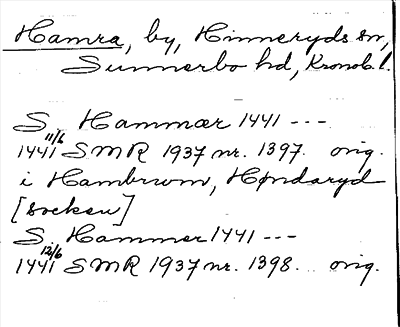 Hamra, by, Hinneryds sn,
Sunnerbo hd, Kronob. l.
S. Hammær 1441 ---
11/6
1441 SMR 1937 nr. 1397. orig.
i Hambrwm, Høndaryd
[socken]
S. Hammer 1441 ---
12/6
1441 SMR 1937 nr. 1398... orig.